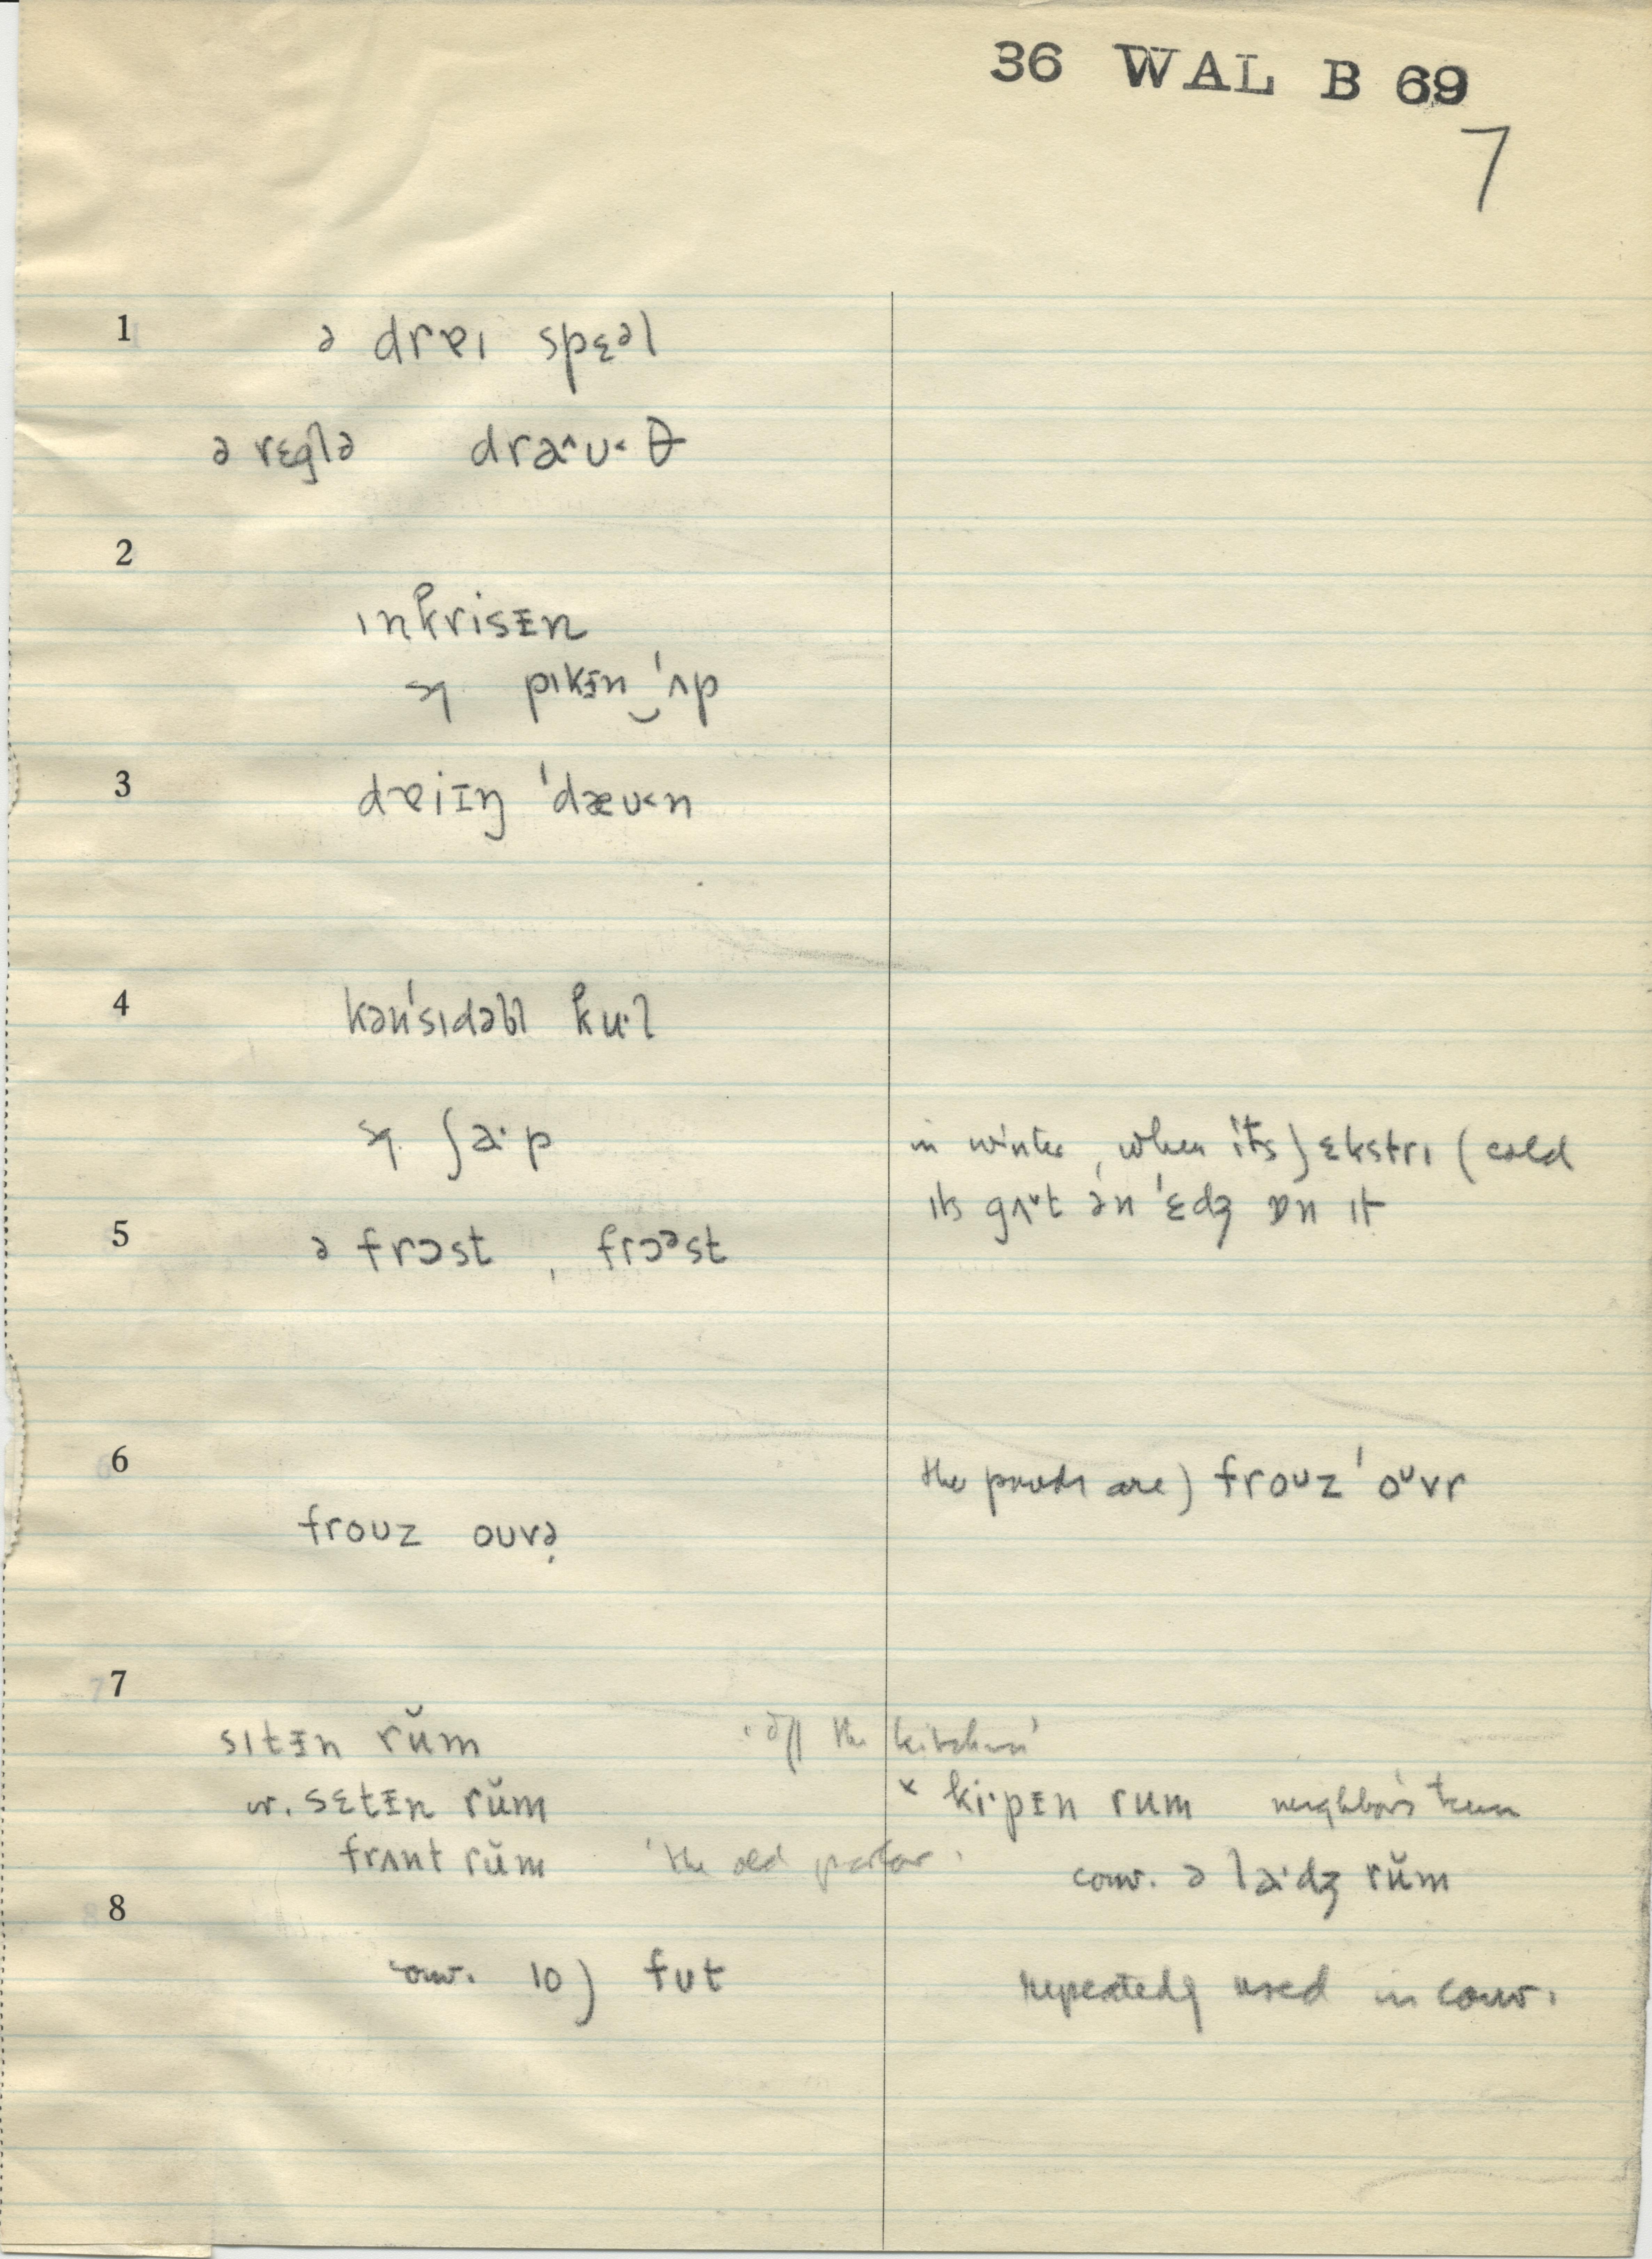 36 WAL B 69
7
1 ə drɐɪ spɛᵊl
ə rɛglə draˆʊ˂ θ
2
ɪnkrisᵻn
pɪkᵻn‿ˈʌp
3 dɐiɪŋ ˈdæʊ˂n
4 kənˈsɪdəbl ku·l
ʃa·p in winter, when its) ɛkstrɪ (cold
ɪts gʌᵛt ən ˈɛdʒ ɒn ɪt
5 ə frɔst , frɔᵊst
6 the ponds are) froᴜz ˈoᴜvr
froᴜz oᴜvə̣
7
sɪtᵻn rŭm 'off the kitchen'
w. sɛtᵻn rŭm × ki·pɪn rum neighbor's term
frʌnt rŭm 'the old parlor' conv. ə la·dʒ rŭm
8
conv. 10) fʊt repeatedly used in conv.